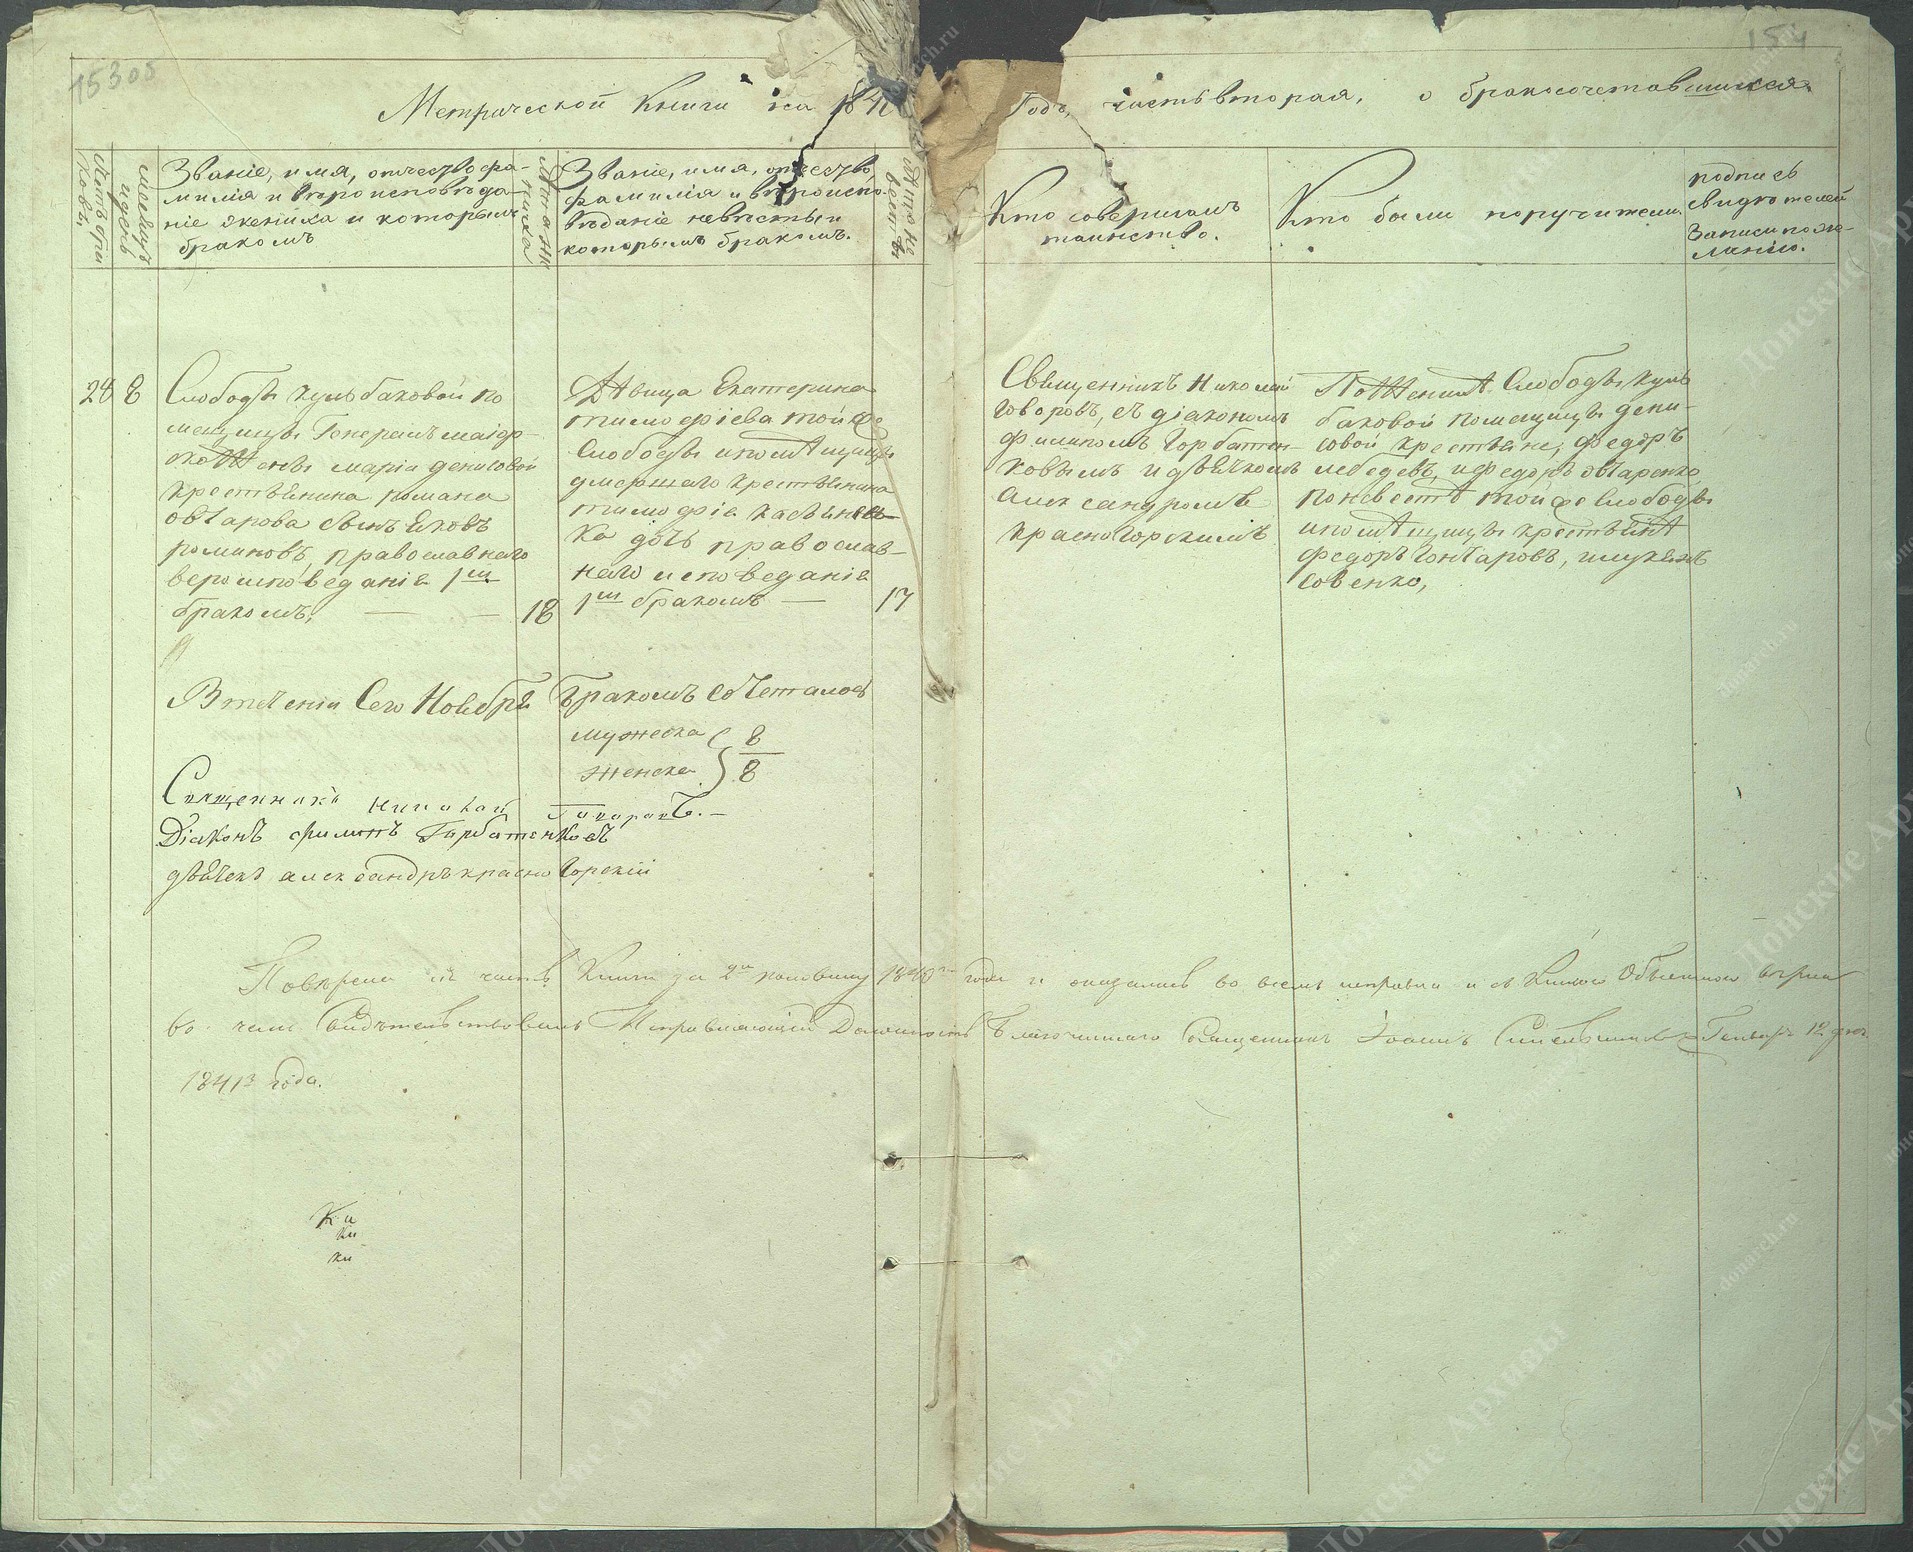 15305
154
Метрической Книги на 1840 Годъ, часть вторая, о бракосочетавшихся.
Званіе, имя, отчество фа-
милія и вероисповеда-
ніе жениха и которымъ
бракомъ
Званіе, имя, отчество
фамилія и вероиспо-
веданіе невесты и
которымъ бракомъ.
Кто совершалъ
таинство.
Кто были поручители
подпись
свидетелей
Записи по же-
ланію.
24 8
Слободы Кульбаковой по
мещицы Генералъ маіор-
Маріи Денисовой
крестьянина Романа
Овчарова сынъ Яковъ
Романовъ, православнаго
вероисповеданія 1мъ
бракомъ, — — 18
Девица Екатерина
Тимофіева той же
Слободы и помещицы
умершаго крестьянина
Тимофія
ка дочь православ-
наго исповеданія
1мъ бракомъ — 17
Священникъ Николай
Говоровъ, съ діакономъ
Филипомъ Горбатен-
ковымъ и дьячкомъ
Александромъ
Красногорскимъ
По Жених Слободы Куль
баковой помещицы Дени-
совой крестьяне, Федоръ
Лебедевъ, и Федоръ Овчаренко
по невесте той же Слободы
и помещицы крестьяне
Федоръ Гончаровъ,
совенко,
В теченіи Сего Ноября бракомъ сочеталось
мужеска 8
женска 8
Священникъ Николай Говоровъ. —
Діаконъ Филипъ Горбатенковъ
дьячекъ Александръ Красногорскій
Поверена часть Книги за 2ю половину 1840го года и оказалась во всемъ исправна и съ Книгою Обыскною верна
во чемъ Свидетельствовалъ Исправляющій Должность Благочиннаго Священникъ Іоаннъ Генваря 12 дня
1841го года.
Ки
ки
ки